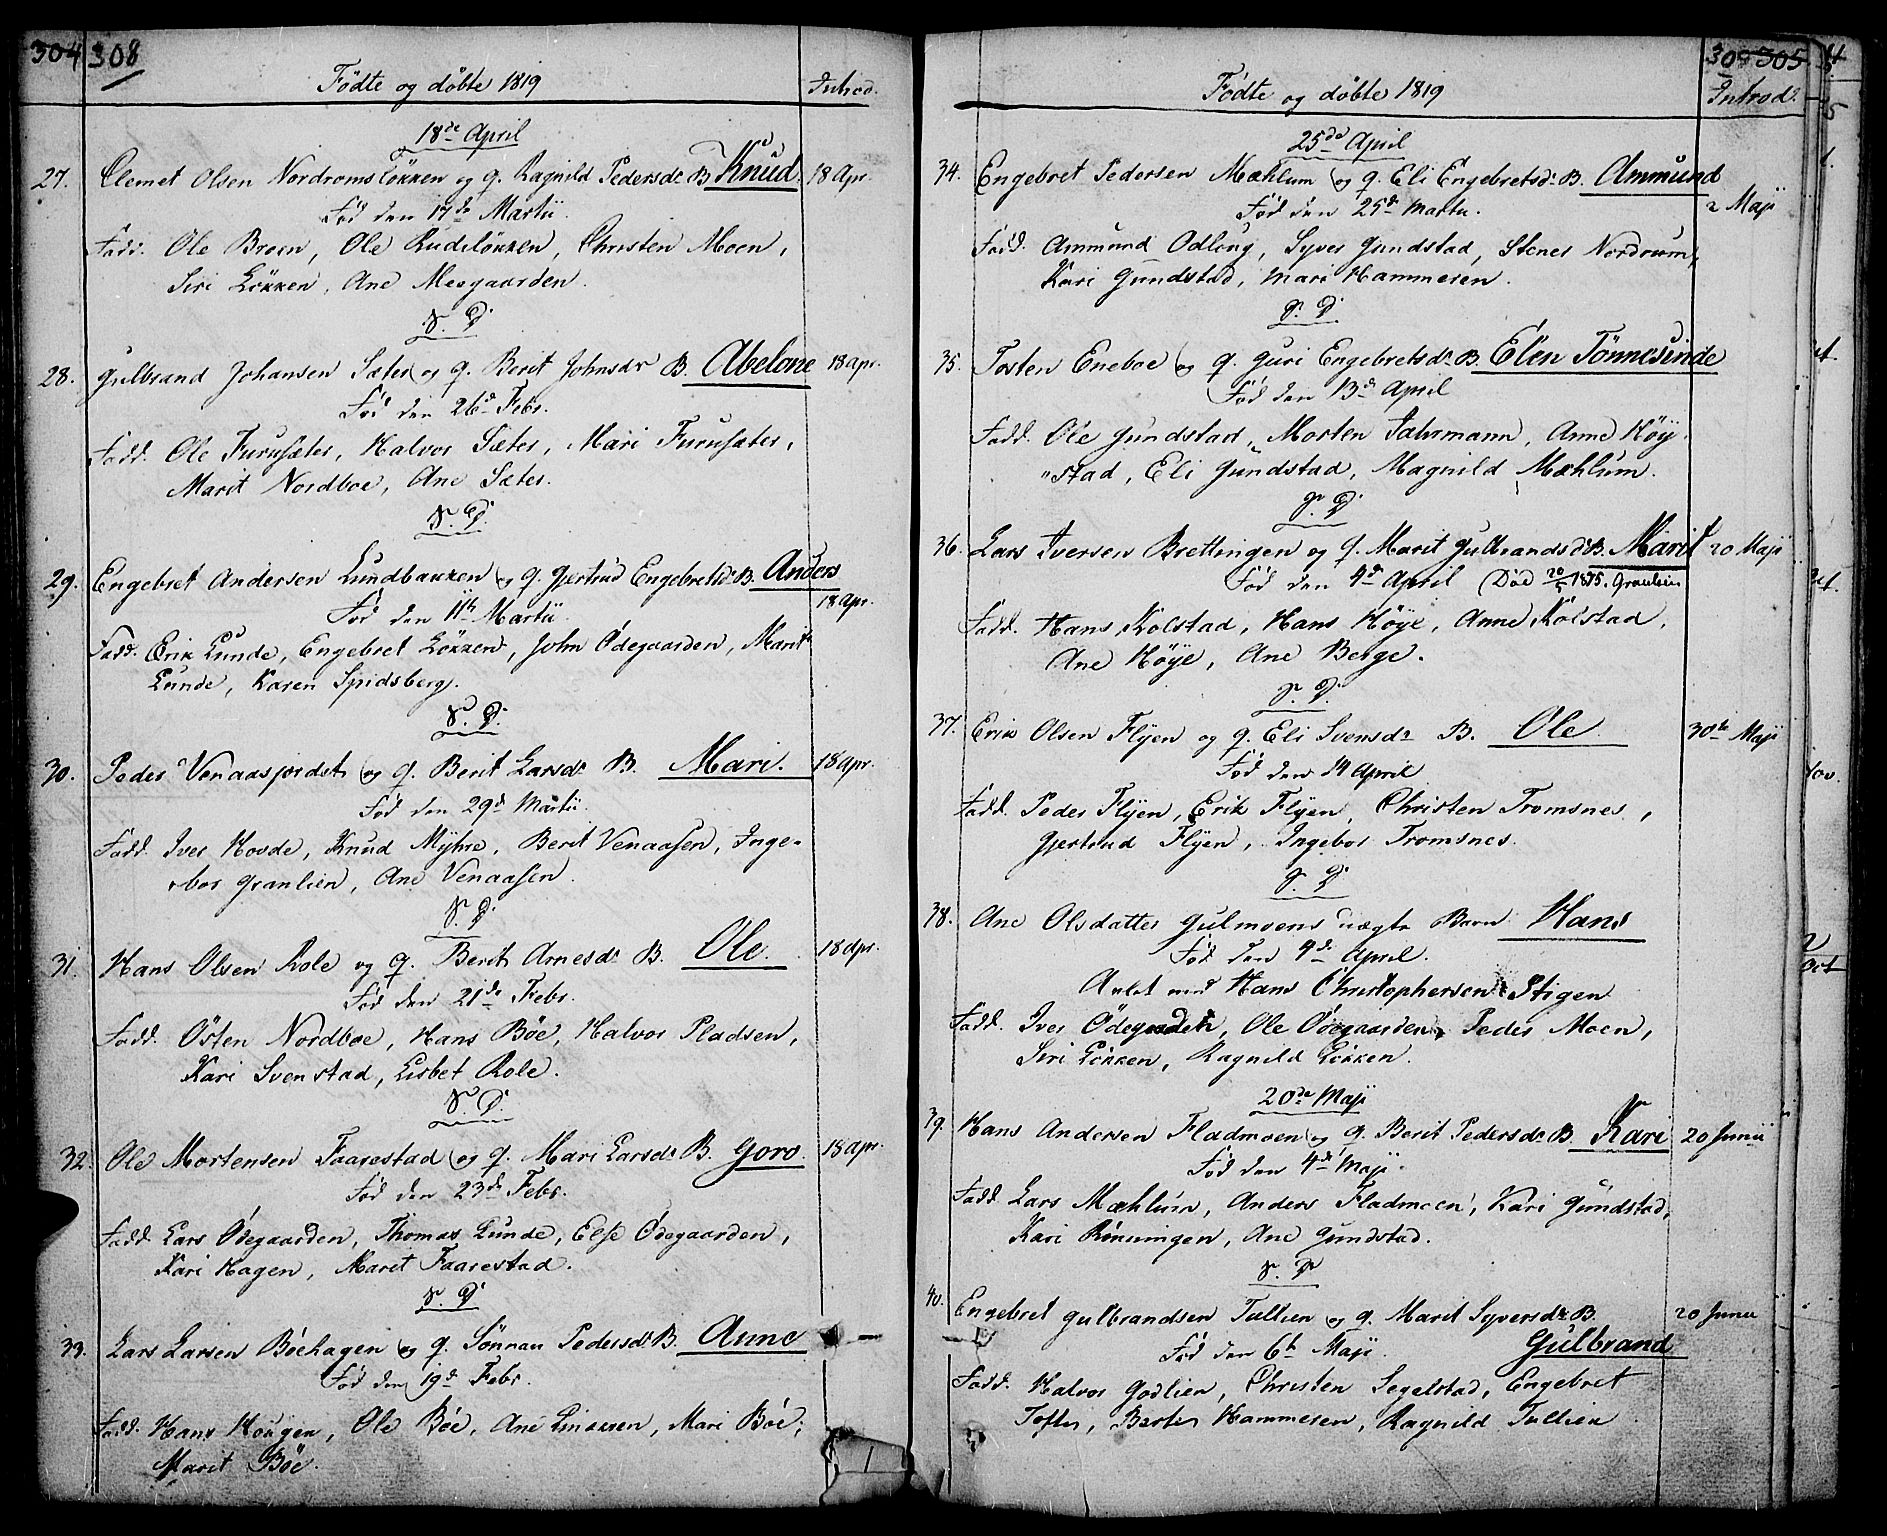 304 308
Födte og döbte 1819
Introd.
18de April
27. Clemet Olsen Nordromslökken og q. Ragnild Pedersdr B. Knud. 18 Apr.
Föd den 17de Martii.
Fadd. Ole Broen, Ole Rudslökken, Christen Moen,
Siri Lökken, Ane Moegaarden.
S. D.
28. Gulbrand Johansen Sæter og q. Berit Johnsdr B. Abelone 18 apr.
Föd den 26de Febr.
Fadd. Ole Furusæter, Halvor Sæter, Mari Furusæter,
Marit Nordboe, Ane Sæter.
S. D.
29. Engebret Andersen Lundbakken og q. Gjertrud Engebretsdr B. Anders
18 Apr.
Föd den 11te Martii.
Fadd. Erik Lunde, Engebret Lökken, John Ödegaarden, Marit
Lunde, Karen Spidsberg.
S. D.
30. Peder Venaasjordet og q. Berit Larsdr B. Mari. 18 apr.
Föd den 29de Martii.
Fadd. Iver Hovde, Knud Myhre, Berit Venaasen, Inge-
bor Granlien, Ane Venaasen.
S. D.
31. Hans Olsen Role og q. Berit Arnesdr B. Ole. 18 apr.
Föd den 21de Febr.
Fadd. Östen Nordboe, Hans Böe, Halvor Pladsen,
Kari Svenstad, Lisbet Role.
S. D.
32. Ole Mortensen Faarestad og q. Mari Larsdr B. Goro. 18 apr.
Föd den 23de Febr.
Fadd. Lars Ödegaarden, Thomas Lunde, Else Ödegaarden,
Kari Hagen, Marit Faarestad.
S. D.
33. Lars Larsen Böehagen og q. Sönnau Pedersdr B. Anne
Föd den 19de Febr.
Fadd. Hans Hougen, Ole Böe, Ane Linaksen, Mari Böe,
Marit Böe.
309 305
Födte og döbte 1819
Introd.
25de April
34. Engebret Pedersen Mæhlum og q. Eli Engebretsdr B. Ammund
2 Maji
Föd den 25de Martii.
Fadd. Ammund Odloug, Syver Gundstad, Stener Nordrum,
Kari Gundstad, Mari Hammeren.
S. D.
35. Tosten Eneboe og q. Guri Engebretsdr B. Elen Tönnesinde
Föd den 13de April
Fadd. Ole Gundstad, Morten Fahrmann, Anne Höy-
"stad, Eli Gundstad, Magnild Mæhlum.
S. D.
36. Lars Iversen Brettingen og q. Marit Gulbrandsdr B. Marit 20 Maji
Föd den 4de April (Död 20/5 1895. Granlien
Fadd. Hans Kolstad, Hans Höye, Anne Kolstad,
Ane Höye, Ane Berge.
S. D.
37. Erik Olsen Flyen og q. Eli Svensdr B. Ole. 30te Maji
Föd den 14 April
Fadd. Peder Flyen, Erik Flyen, Christen Tromsnes,
Gjertrud Flyen, Ingebor Tromsnes.
S. D.
38. Ane Olsdatter Gulmoens uægte Barn Hans
Föd den 4de April.
Avlet med Hans Christophersen Stigen
Fadd. Iver Ödegaarden, Ole Ödegaarden, Peder Moen,
Siri Lökken, Ragnild Lökken.
20de Maji
39. Hans Andersen Fladmoen og q. Berit Pedersdr B. Kari 20 Junii
Föd den 4de Maji.
Fadd. Lars Mæhlum, Anders Fladmoen, Kari Gundstad,
Kari Rönningen, Ane Gundstad.
S. D.
40. Engebret Gulbrandsen Tullien og q. Marit Syversdr B. 20 Junii
Föd den 6te Maji. Gulbrand
Fadd. Halvor Godlien, Christen Segelstad, Engebret
Tofte, Berte Hammeren, Ragnild Tullien